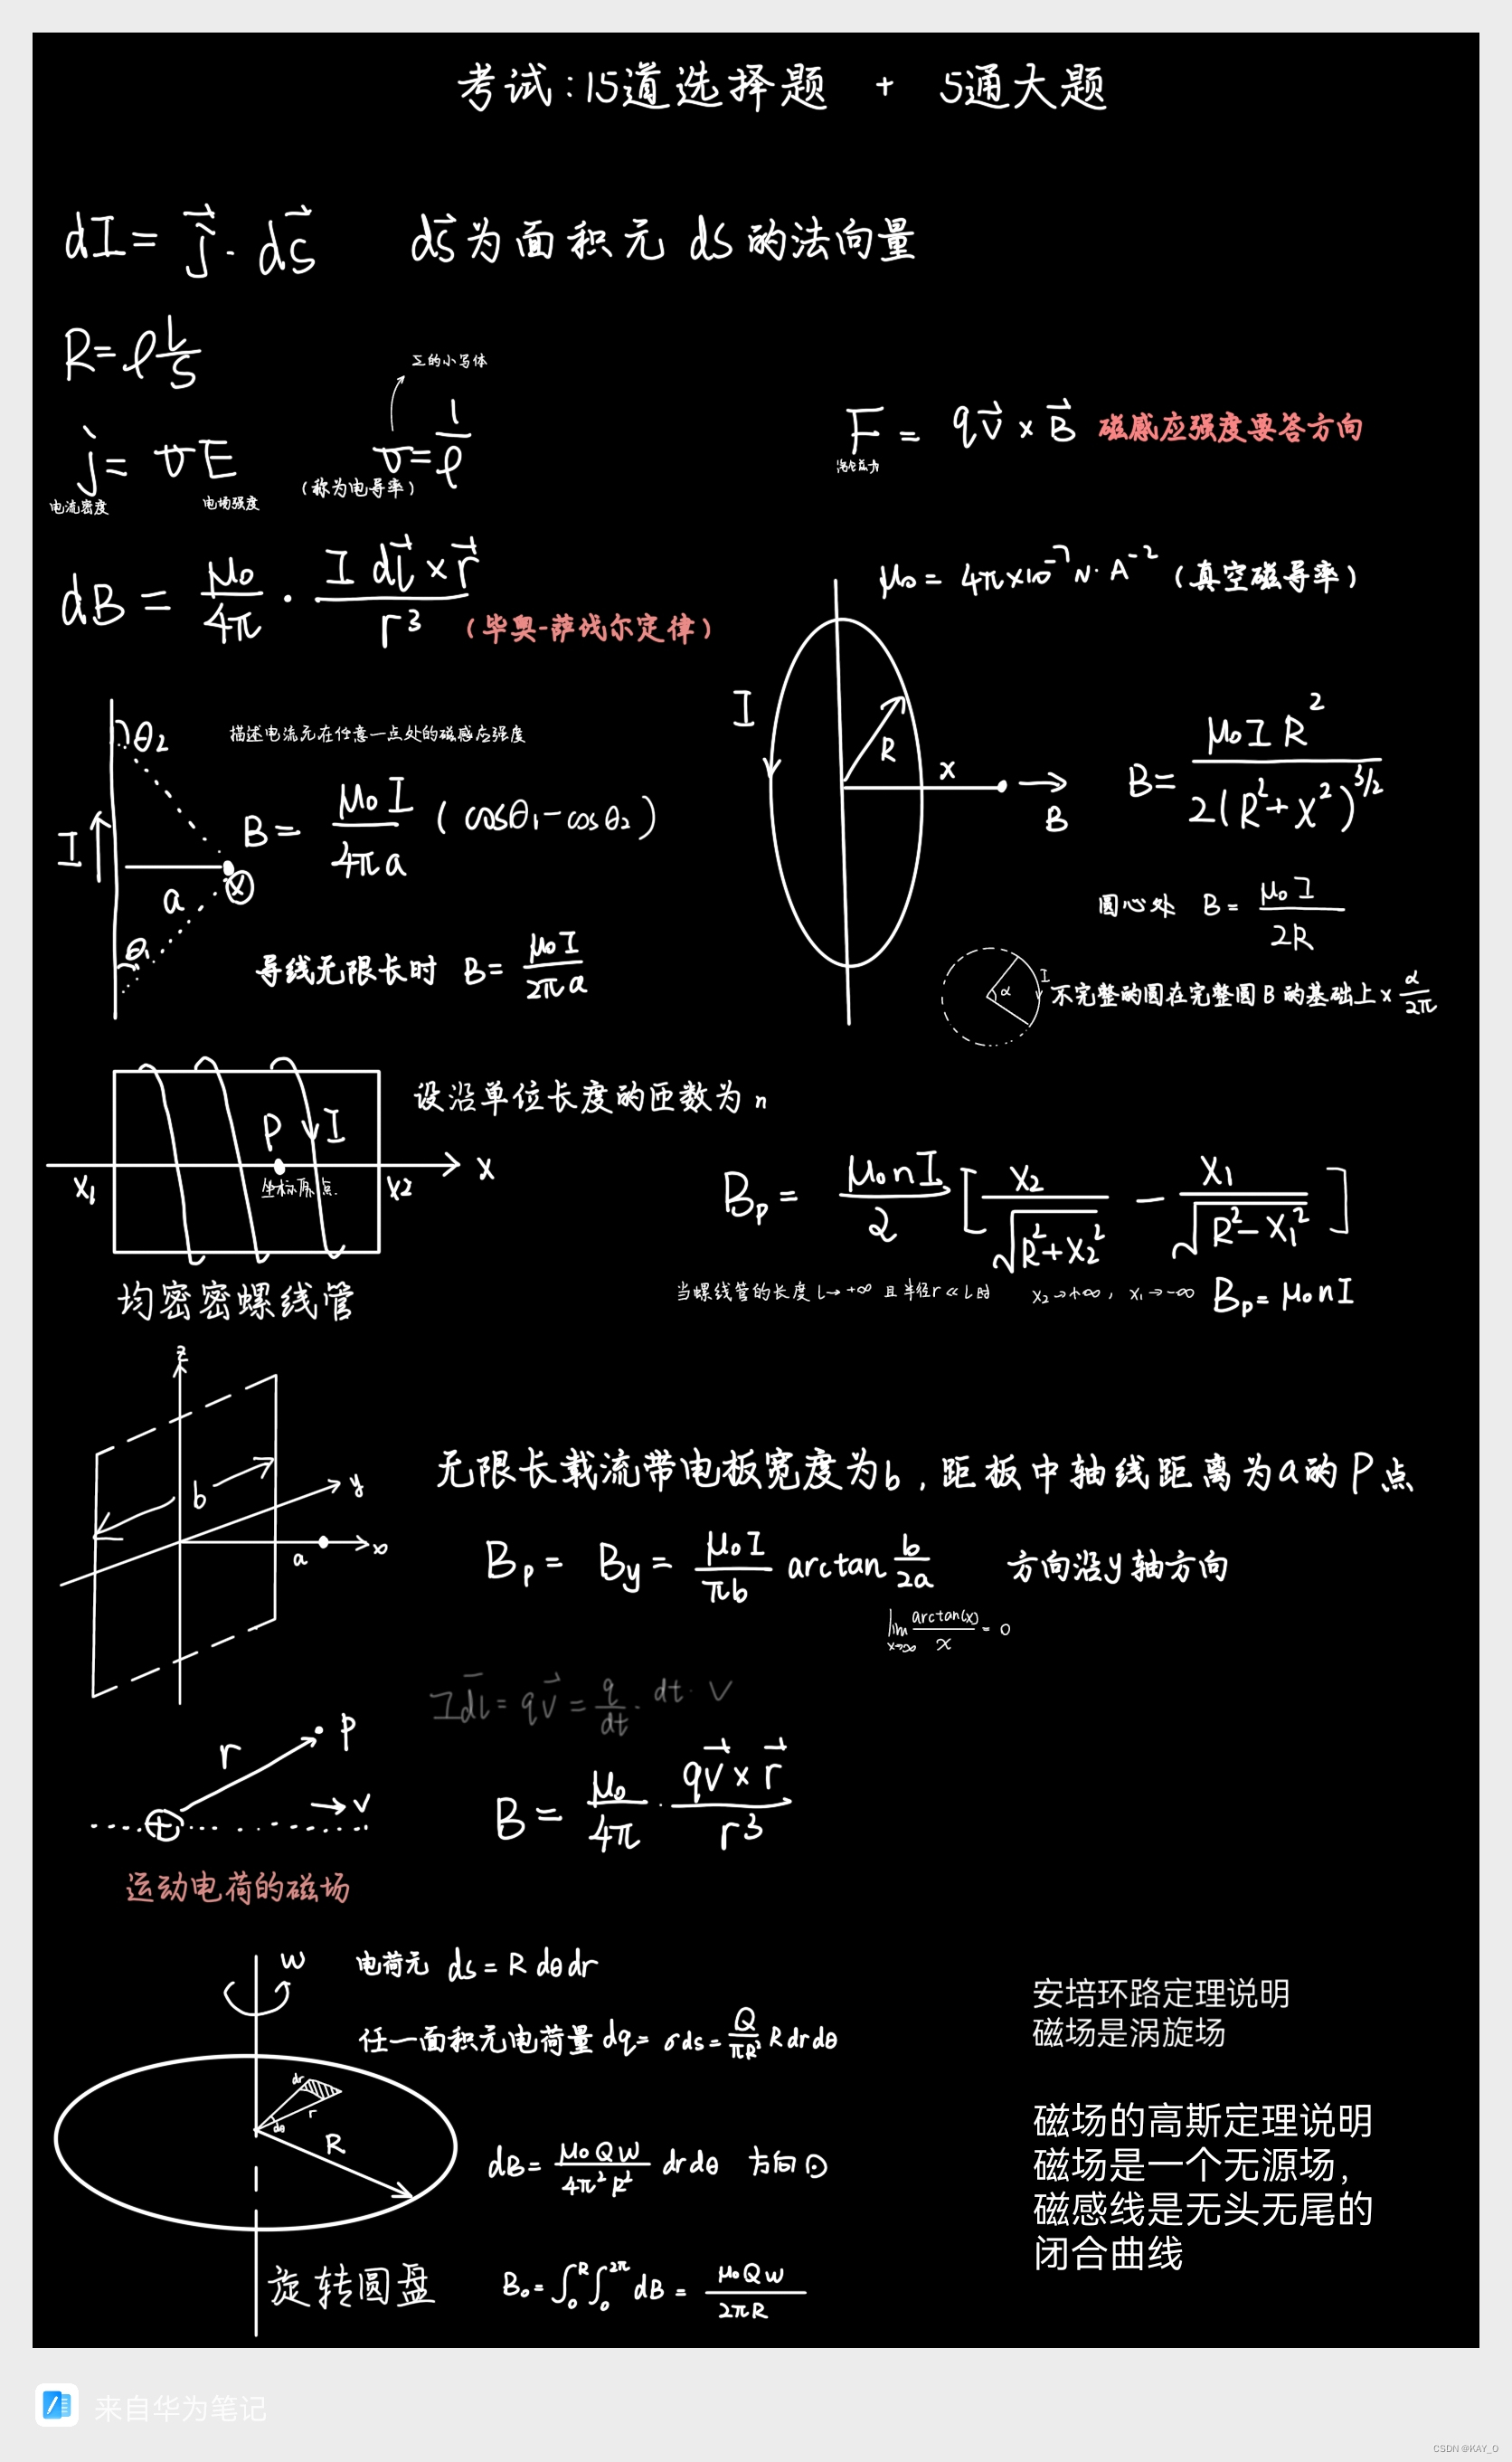 考试:15道选择题 + 5通大题
dI = j⃗ · ds⃗ ds⃗为面积元 ds的法向量
R = ρ L/S
Σ的小写体
j = σE σ = 1/ρ
电流密度 电场强度 (称为电导率)
F = qv⃗ × B⃗ 磁感应强度要答方向
dB = μ₀/4π · I dl⃗ × r⃗ / r³ (毕奥-萨伐尔定律)
μ₀ = 4π×10⁻⁷ N·A⁻² (真空磁导率)
描述电流元在任意一点处的磁感应强度
θ₂
I
a
θ₁
B = μ₀I/4πa (cosθ₁ - cosθ₂)
导线无限长时 B = μ₀I/2πa
I
R
x
B
B = μ₀IR²/2(R²+x²)^3/2
圆心处 B = μ₀I/2R
α
I
不完整的圆在完整圆B的基础上 × α/2π
设沿单位长度的匝数为 n
P I
x₁ 坐标原点. x₂ x
Bp = μ₀nI/2 [x₂/√(R²+x₂²) - x₁/√(R²-x₁²)]
均密密螺线管
当螺线管的长度L→+∞ 且半径r≪L时 x₂→+∞, x₁→-∞ Bp = μ₀nI
z
b
y
a
x
无限长载流带电板宽度为b,距板中轴线距离为a的P点
Bp = By = μ₀I/πb arctan b/2a 方向沿y轴方向
lim x→∞ arctan(x)/x = 0
Idl⃗ = qv⃗ = q/dt · dt · v
r P
v
B = μ₀/4π · qv⃗ × r⃗ / r³
运动电荷的磁场
w
电荷元 ds = R dθ dr
任一面积元电荷量 dq = σds = Q/πR² R dr dθ
dr
r
dθ
R
dB = μ₀Qw/4π²R² dr dθ 方向⊙
旋转圆盘
B₀ = ∫₀ᴿ∫₀²π dB = μ₀Qw/2πR
安培环路定理说明
磁场是涡旋场
磁场的高斯定理说明
磁场是一个无源场,
磁感线是无头无尾的
闭合曲线
来自华为笔记
CSDN @KAY_O